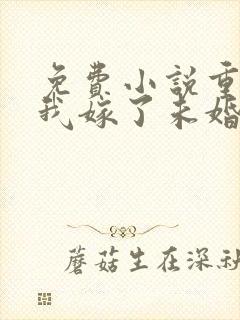 免费小说重
我嫁了未婚
蘑菇生在深秋